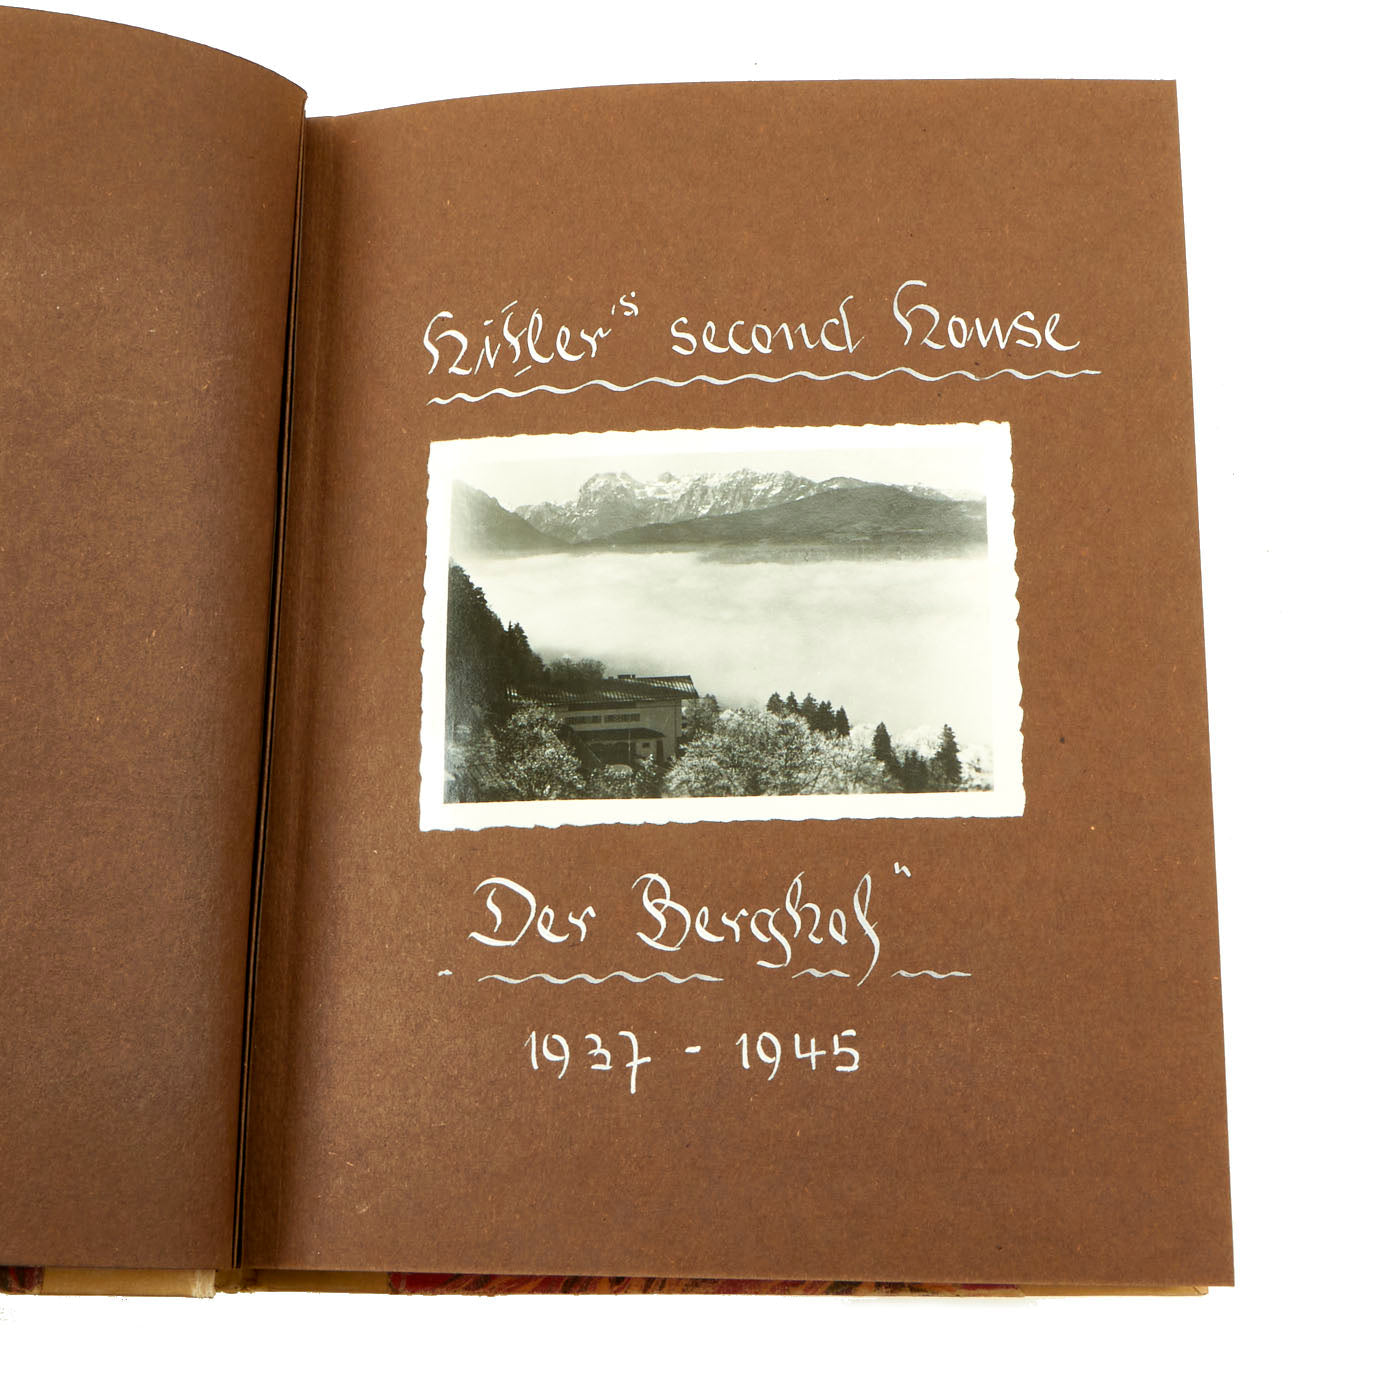 Hitler's second House
"Der Berghof"
1937 - 1945